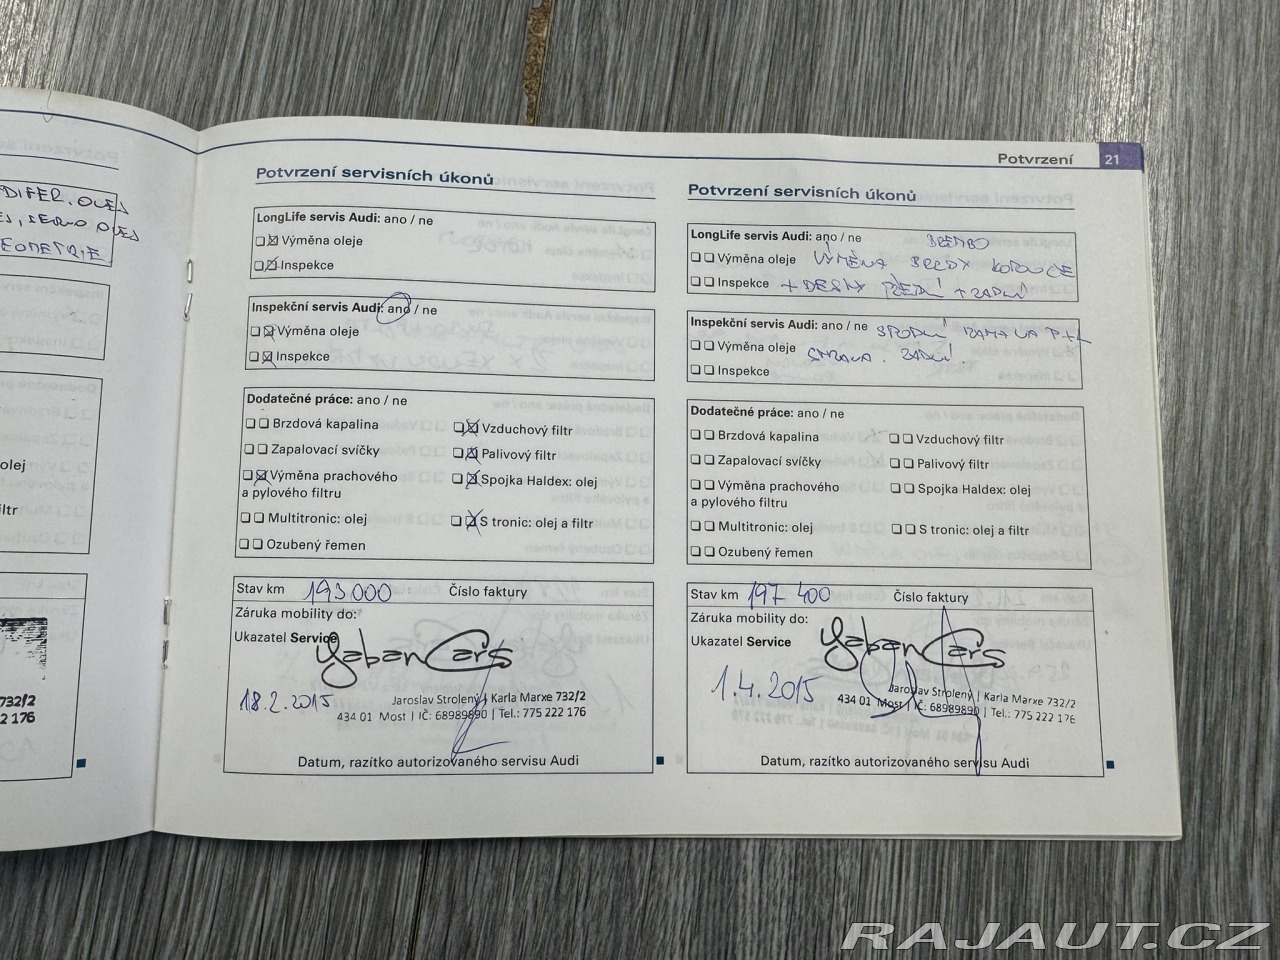 DIFER. OLEJ
SERVO OLEJ
GEOMETRIE
olej
iltr
732/2
2 176
Potvrzení 21
Potvrzení servisních úkonů
LongLife servis Audi: ano / ne
Výměna oleje
Inspekce
Inspekční servis Audi: ano / ne
Výměna oleje
Inspekce
Dodatečné práce: ano / ne
Brzdová kapalina
Vzduchový filtr
Zapalovací svíčky
Palivový filtr
Výměna prachového
a pylového filtru
Spojka Haldex: olej
Multitronic: olej
S tronic: olej a filtr
Ozubený řemen
Stav km 193 000 Číslo faktury
Záruka mobility do:
Ukazatel Service
YabanCars
18.2.2015
Jaroslav Strolený | Karla Marxe 732/2
434 01 Most | IČ: 68989890 | Tel.: 775 222 176
Datum, razítko autorizovaného servisu Audi
Potvrzení servisních úkonů
LongLife servis Audi: ano / ne BREMBO
Výměna oleje VÝMĚNA BRZDY KOTOUČE
Inspekce + DESKY PŘEDNÍ + ZADNÍ
Inspekční servis Audi: ano / ne SPODNÍ RAMENA P+L
Výměna oleje ZADNÍ.
Inspekce
Dodatečné práce: ano / ne
Brzdová kapalina
Vzduchový filtr
Zapalovací svíčky
Palivový filtr
Výměna prachového
a pylového filtru
Spojka Haldex: olej
Multitronic: olej
S tronic: olej a filtr
Ozubený řemen
Stav km 197 400 Číslo faktury
Záruka mobility do:
Ukazatel Service
YabanCars
1.4.2015
Jaroslav Strolený | Karla Marxe 732/2
434 01 Most | IČ: 68989890 | Tel.: 775 222 176
Datum, razítko autorizovaného servisu Audi
RAJAUT.CZ